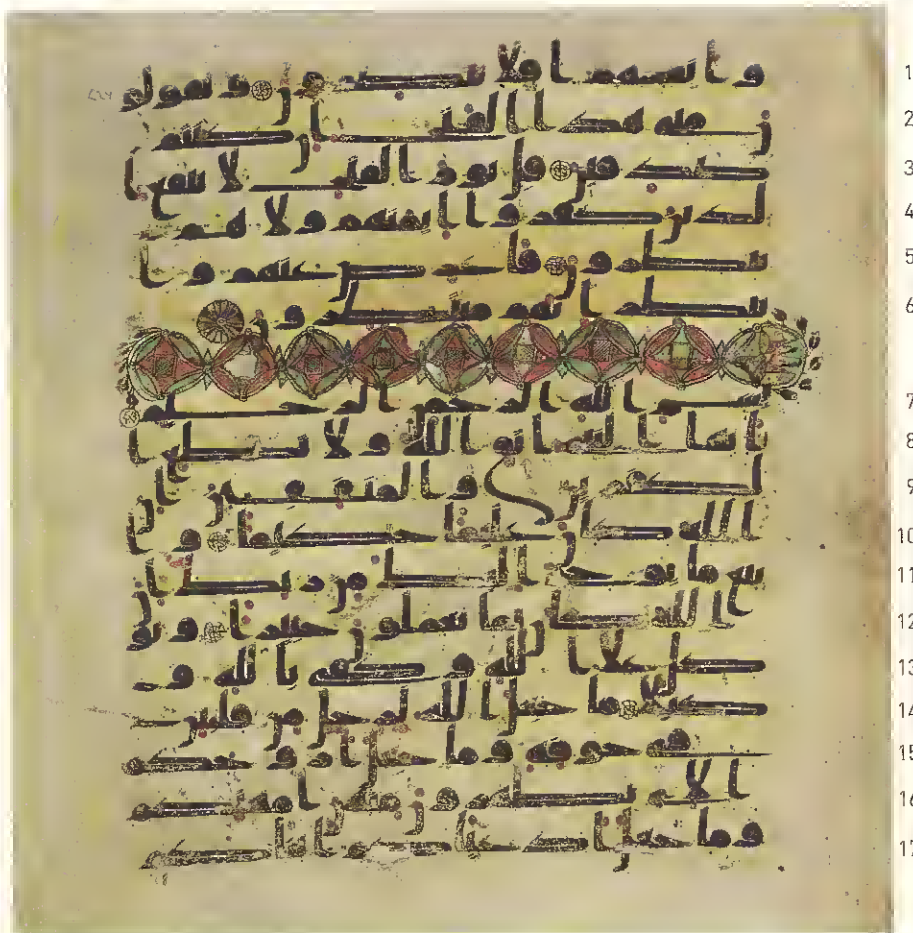 1 وانفسهم افلا يبصرون ويقولو
2 ن متى هذا الفتح ان كنتم
3 صدقين قل يوم الفتح لا ينفع ا
4 لذين كفروا ايمنهم ولا هم
5 ينظرون فاعرض عنهم وا
6 نتظر انهم منتظرون
7 بسم الله الرحمن الرحيم
8 يايها النبي اتق الله ولا تطع ا
9 لكفرين والمنفقين ان
10 الله كان عليما حكيما وا
11 تبع ما يوحى اليك من ربك ان
12 الله كان بما تعملون خبيرا وتو
13 كل على الله وكفى بالله و
14 كيلا ما جعل الله لرجل من قلبين
15 في جوفه وما جعل ازوجكم
16 الى تظهرون منهن امهتكم
17 وما جعل ادعياكم ابناكم